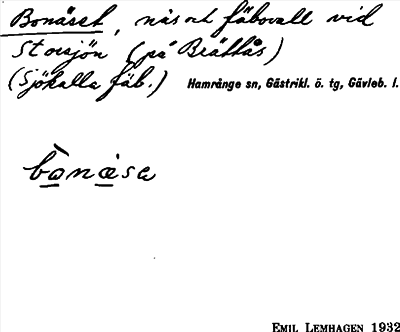 Bonäset, näs och fäbovall vid
Storsjön (på Brättås)
(Sjökalla fäb.) Hamrånge sn, Gästrikl. ö. tg, Gävleb. l.
bònäsa
EMIL LEMHAGEN 1932